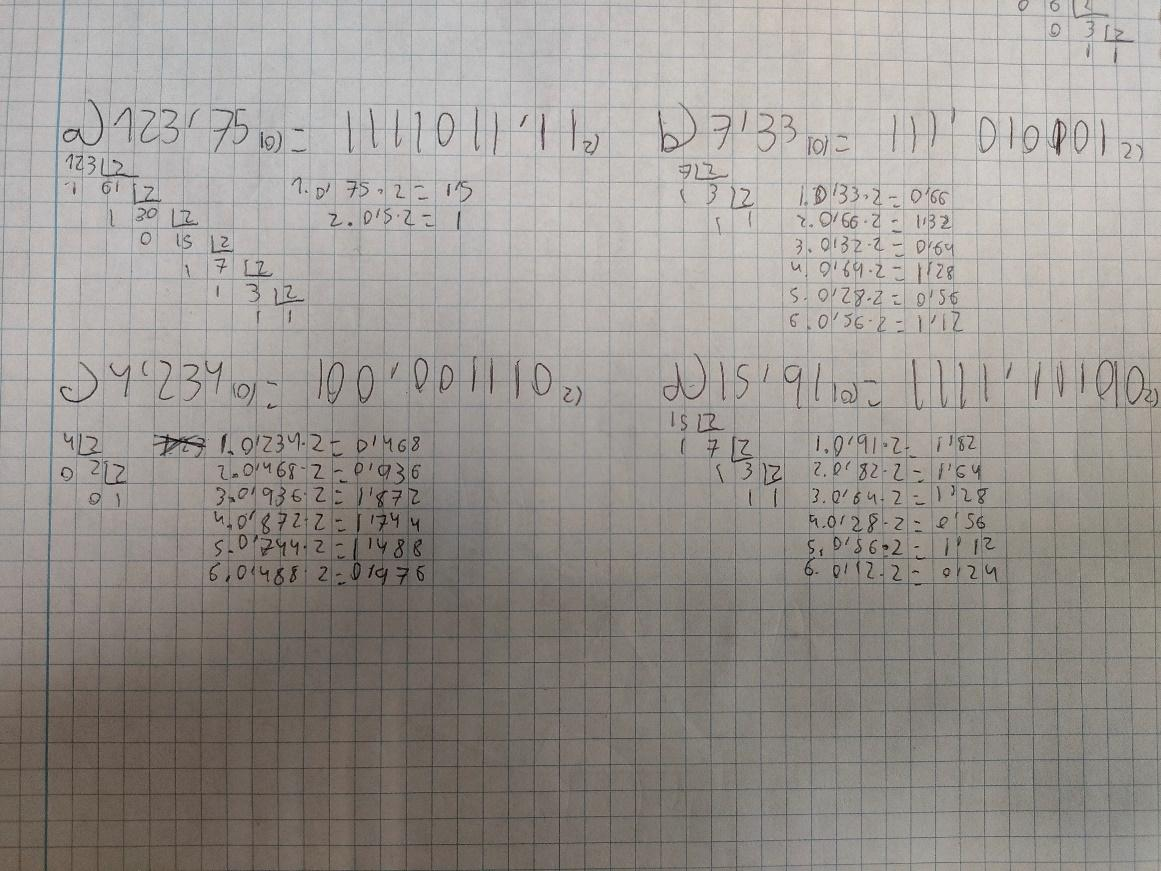 0 6 2
0 3 2
1 1
a) 123'75(10) = 1111011'11 2)
123 2
1 61 2
1 30 2
0 15 2
1 7 2
1 3 2
1 1
1. 0'75·2 = 1'5
2. 0'5·2 = 1
b) 7'33(10) = 111'010101 2)
7 2
1 3 2
1 1
1. 0'33·2 = 0'66
2. 0'66·2 = 1'32
3. 0'32·2 = 0'64
4. 0'64·2 = 1'28
5. 0'28·2 = 0'56
6. 0'56·2 = 1'12
c) 4'234(10) = 100'001110 2)
4 2
0 2 2
0 1
1. 0'234·2 = 0'468
2. 0'468·2 = 0'936
3. 0'936·2 = 1'872
4. 0'872·2 = 1'744
5. 0'744·2 = 1'488
6. 0'488·2 = 0'976
d) 15'91(10) = 1111'111010 2)
15 2
1 7 2
1 3 2
1 1
1. 0'91·2 = 1'82
2. 0'82·2 = 1'64
3. 0'64·2 = 1'28
4. 0'28·2 = 0'56
5. 0'56·2 = 1'12
6. 0'12·2 = 0'24